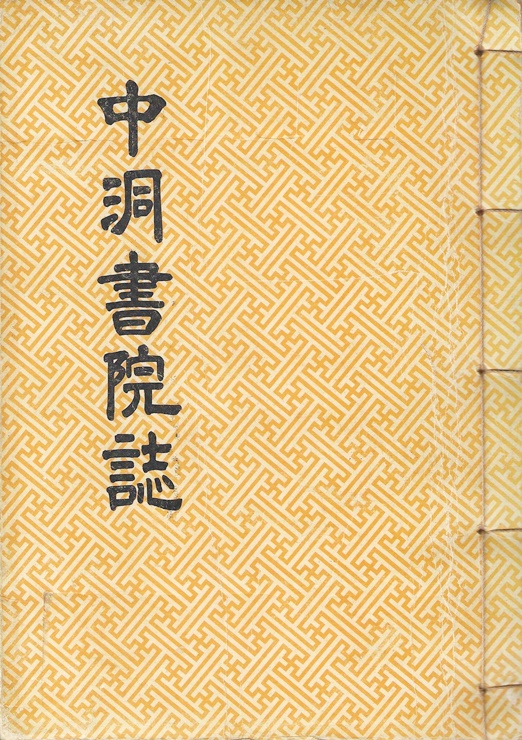 中洞書院誌